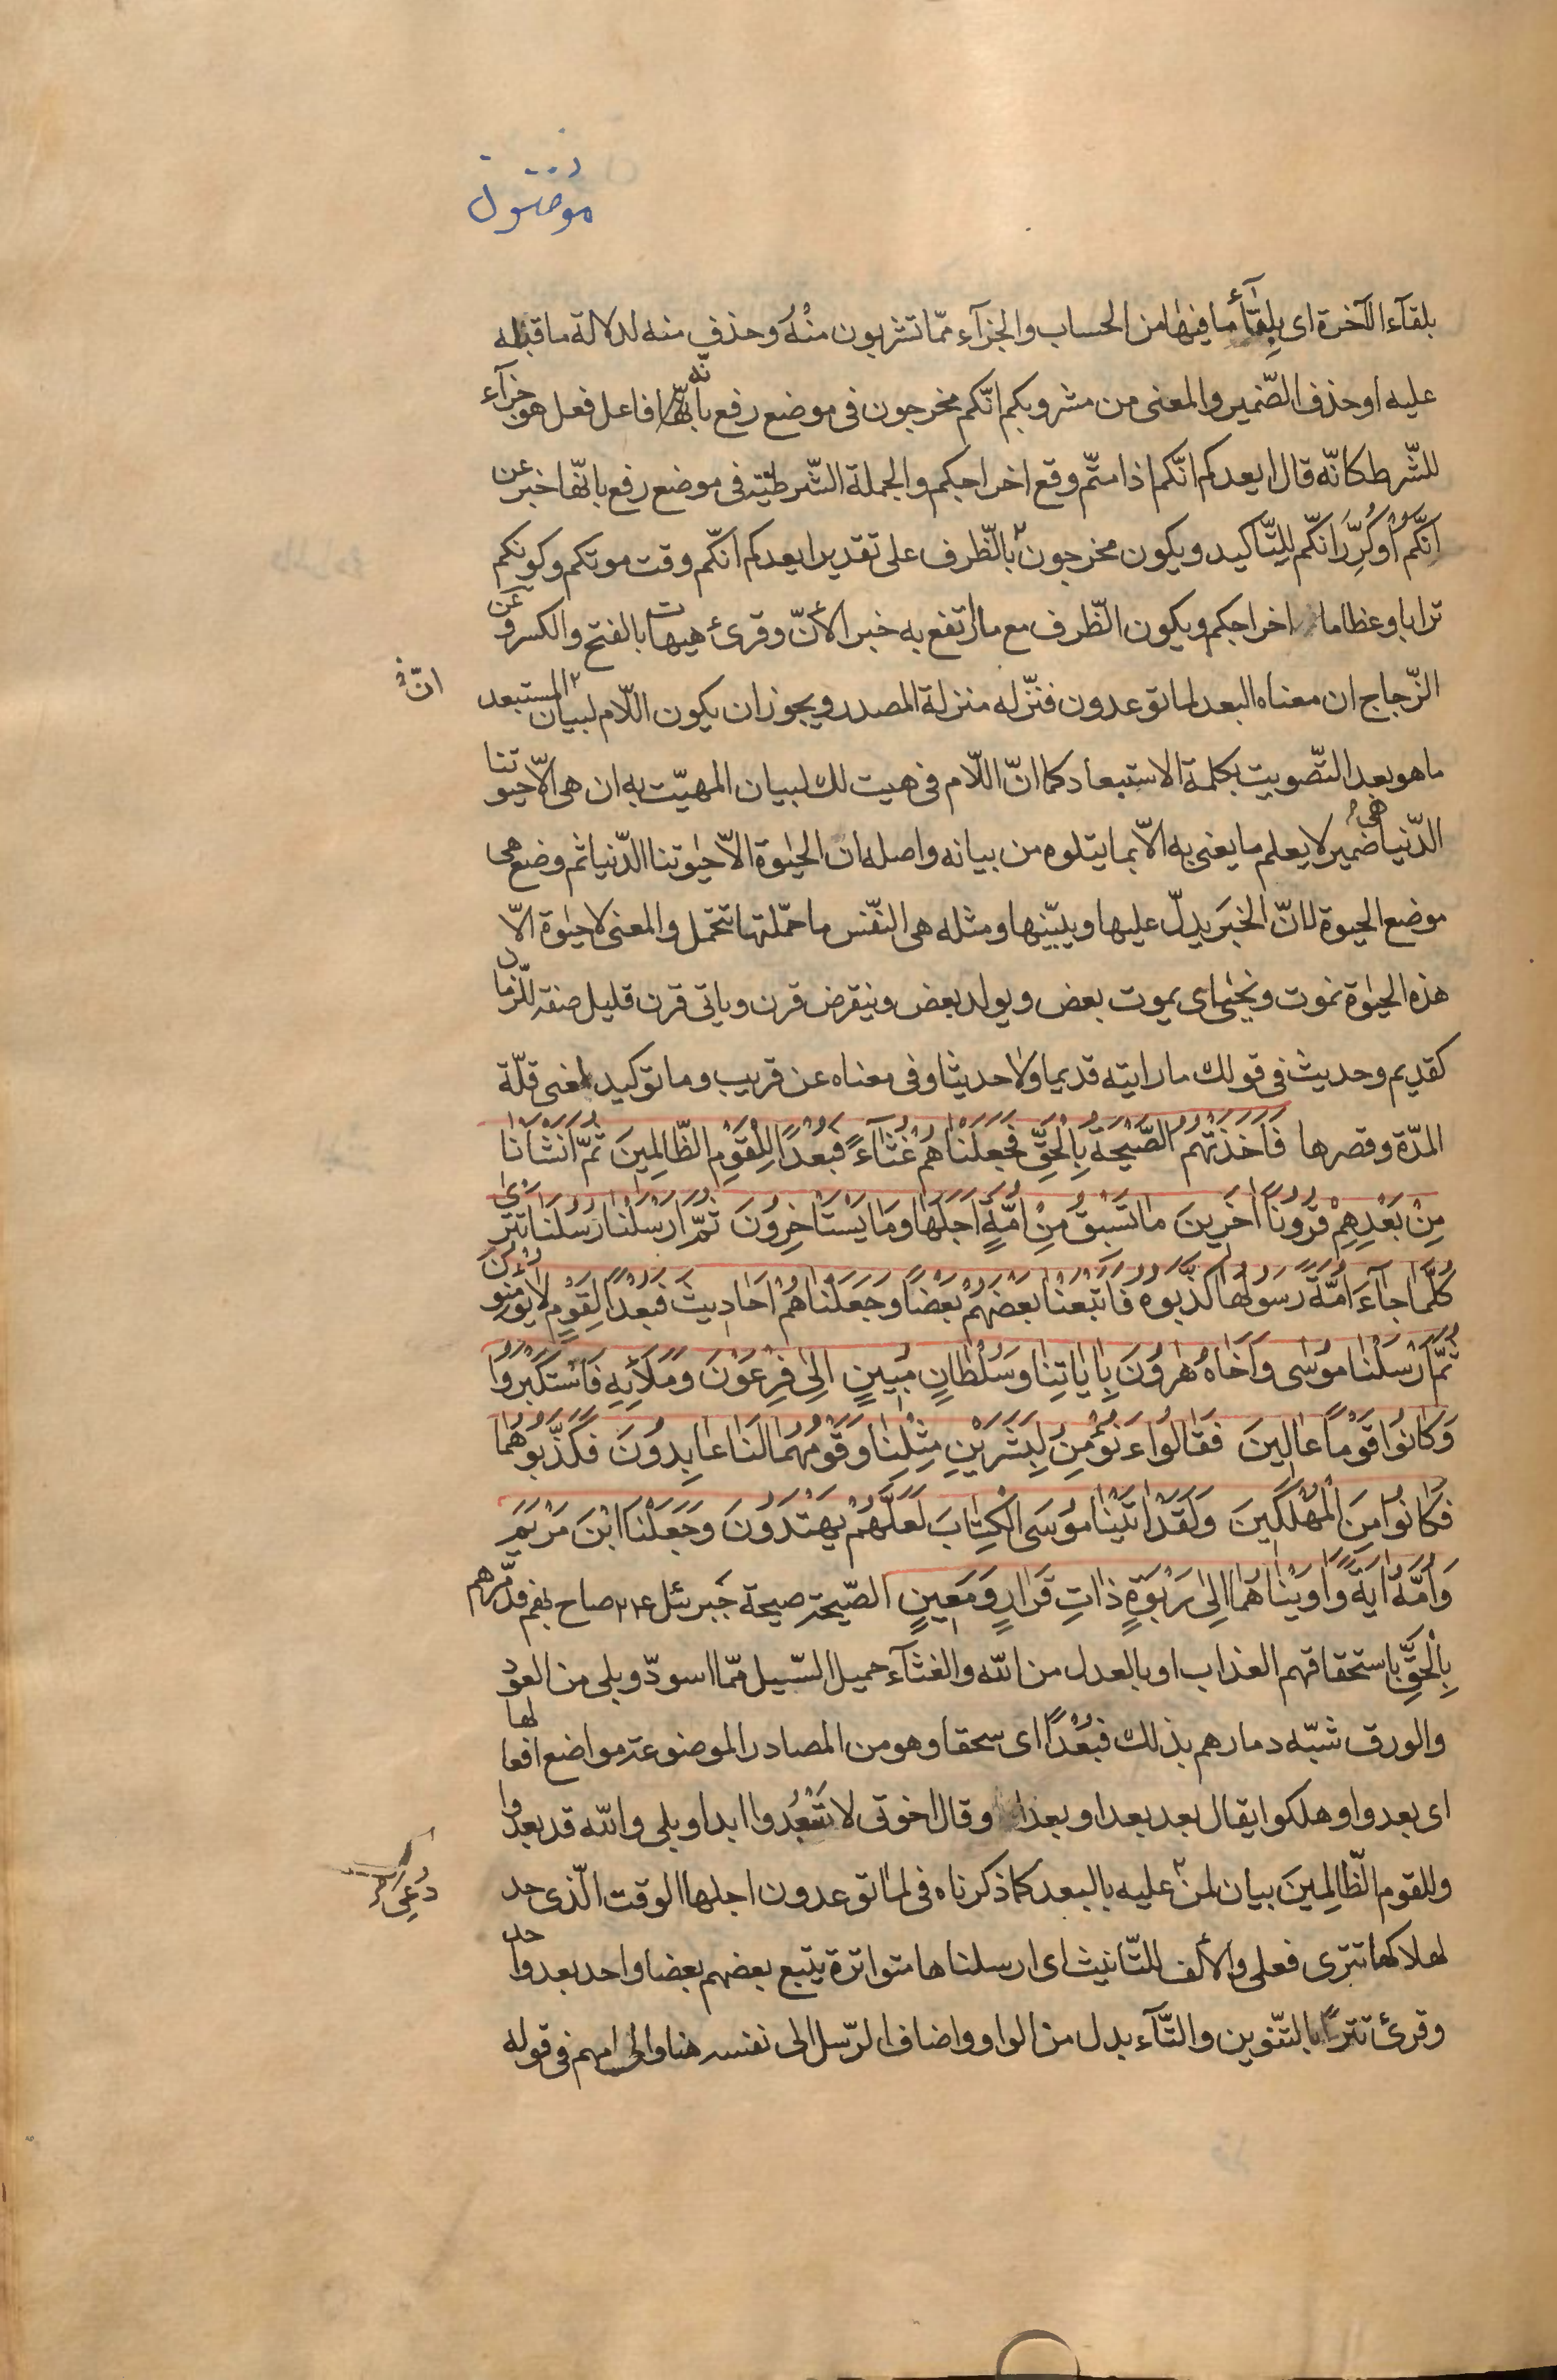 مؤمنون
بلقآء الآخرة اى بِلِقآءِ ما فيها من الحساب والجزآء ممّا تشربون منْهُ وحذف منه لدلالة ما قبله
عليه او حذف الضّمير والمعنى من مشروبكم انّكم مخرجون فى موضع رفع بأنّه فاعل فعل هو جزآء
للشّرط كانّه قال ايعدكم انّكم اذا متّم وقع اخراجكم والجملة الشّرطيّة فى موضع رفع بانّها خبر عن
انّكُمْ اوكُرِّرَ انّكم لِلتّاكيد ويكون مخرجون بالظّرف على تقدير ايعدكم انّكم وقت موتكم وكونكم
ترابا وعظاما اخراجكم ويكون الظّرف مع ما ارتفع به خبرا لأنّ وقرئ هيهات بالفتح والكسر وعن
الزّجاج ان معناه البعد لما توعدون فنزّله منزلة المصدر ويجوز ان يكون اللّام لبيان المستبعد
انّ
ما هو بعد التّصويت بكلمة الاستبعاد كما انّ اللّام فى هيت لك لبيان المهيّت به ان هى الّا حيوتنا
الدّنيا هى ضمير لا يعلم ما يعنى به الّا بما يتلوه من بيانه واصله ان الحيٰوة الّا حيٰوتنا الدّنيا ثم وضع هى
موضع الحيوة لانّ الخبَر يدلّ عليها ويبيّنها ومثله هى النّفس ما حمّلتها تتحمل والمعنى لا حيٰوة الّا
هذه الحيٰوة نموت ونحيٰى اى يموت بعض ويولد بعض وينقرض قرن وياتى قرن قليل صفة للزّمان
كقديم وحديث فى قولك ما رايته قديما ولا حديثا وفى معناه عن قريب وما توكيد لمعنى قلّة
المدّة وقصرها فَاَخَذَتْهُمُ الصَّيْحَةُ بِالْحَقِّ فَجَعَلْنٰاهُمْ غُثٰآءً فَبُعْدًا لِلْقَوْمِ الظّٰالِمِينَ ثُمَّ اَنْشَأْنٰا
مِنْ بَعْدِهِمْ قُرُونًا اٰخَرِينَ مٰا تَسْبِقُ مِنْ اُمَّةٍ اَجَلَهٰا وَمٰا يَسْتَاْخِرُونَ ثُمَّ اَرْسَلْنٰا رُسُلَنٰا تَتْرىٰ
كُلَّمٰا جٰآءَ اُمَّةً رَسُولُهٰا كَذَّبُوهُ فَاَتْبَعْنٰا بَعْضَهُمْ بَعْضًا وَجَعَلْنٰاهُمْ اَحٰادِيثَ فَبُعْدًا لِقَوْمٍ لٰا يُؤْمِنُونَ
ثُمَّ اَرْسَلْنٰا مُوسٰى وَاَخٰاهُ هٰرُونَ بِاٰيٰاتِنٰا وَسُلْطٰانٍ مُبِينٍ اِلىٰ فِرْعَوْنَ وَمَلَائِهِ فَاسْتَكْبَرُوا
وَكٰانُوا قَوْمًا عٰالِينَ فَقٰالُوا ءَنُؤْمِنُ لِبَشَرَيْنِ مِثْلِنٰا وَقَوْمُهُمٰا لَنٰا عٰابِدُونَ فَكَذَّبُوهُمٰا
فَكٰانُوا مِنَ الْمُهْلَكِينَ وَلَقَدْ اٰتَيْنٰا مُوسَى الْكِتٰابَ لَعَلَّهُمْ يَهْتَدُونَ وَجَعَلْنَا ابْنَ مَرْيَمَ
وَاُمَّهُ اٰيَةً وَاٰوَيْنٰاهُمٰا اِلىٰ رَبْوَةٍ ذٰاتِ قَرٰارٍ وَمَعِينٍ الصّيحة صيحة جَبرئل ع صاح بهم فدمّرهم
بِالْحَقِّ باستحقاقهم العذاب او بالعدل من الله والغثآء حميل السّيل ممّا اسودّ وبلى من العود
والورق شبّه دمارهم بذلك فَبُعْدًا اى سحقا وهو من المصادر الموضوعة مواضع افعالها
اى بعدوا وهلكوا يقال بعد بعدا وبعدا وقال اخوتى لا تَبْعُدُوا ابدا وبلى والله قد بعدوا
وللقوم الظّٰالِمِينَ بيان لمن عليه بالبعد كما ذكرناه فى لما توعدون اجلها الوقت الّذى حد
دُعِىَ
لهلاكها تترى فعلى والألف للتّانيث اى ارسلناها متواترة يتبع بعضهم بعضا واحد بعد واحد
وقرئ تترًا بالتّنوين والتّآء بدل من الواو واضاف الرّسل الى نفسه هنا والى امهم فى قوله